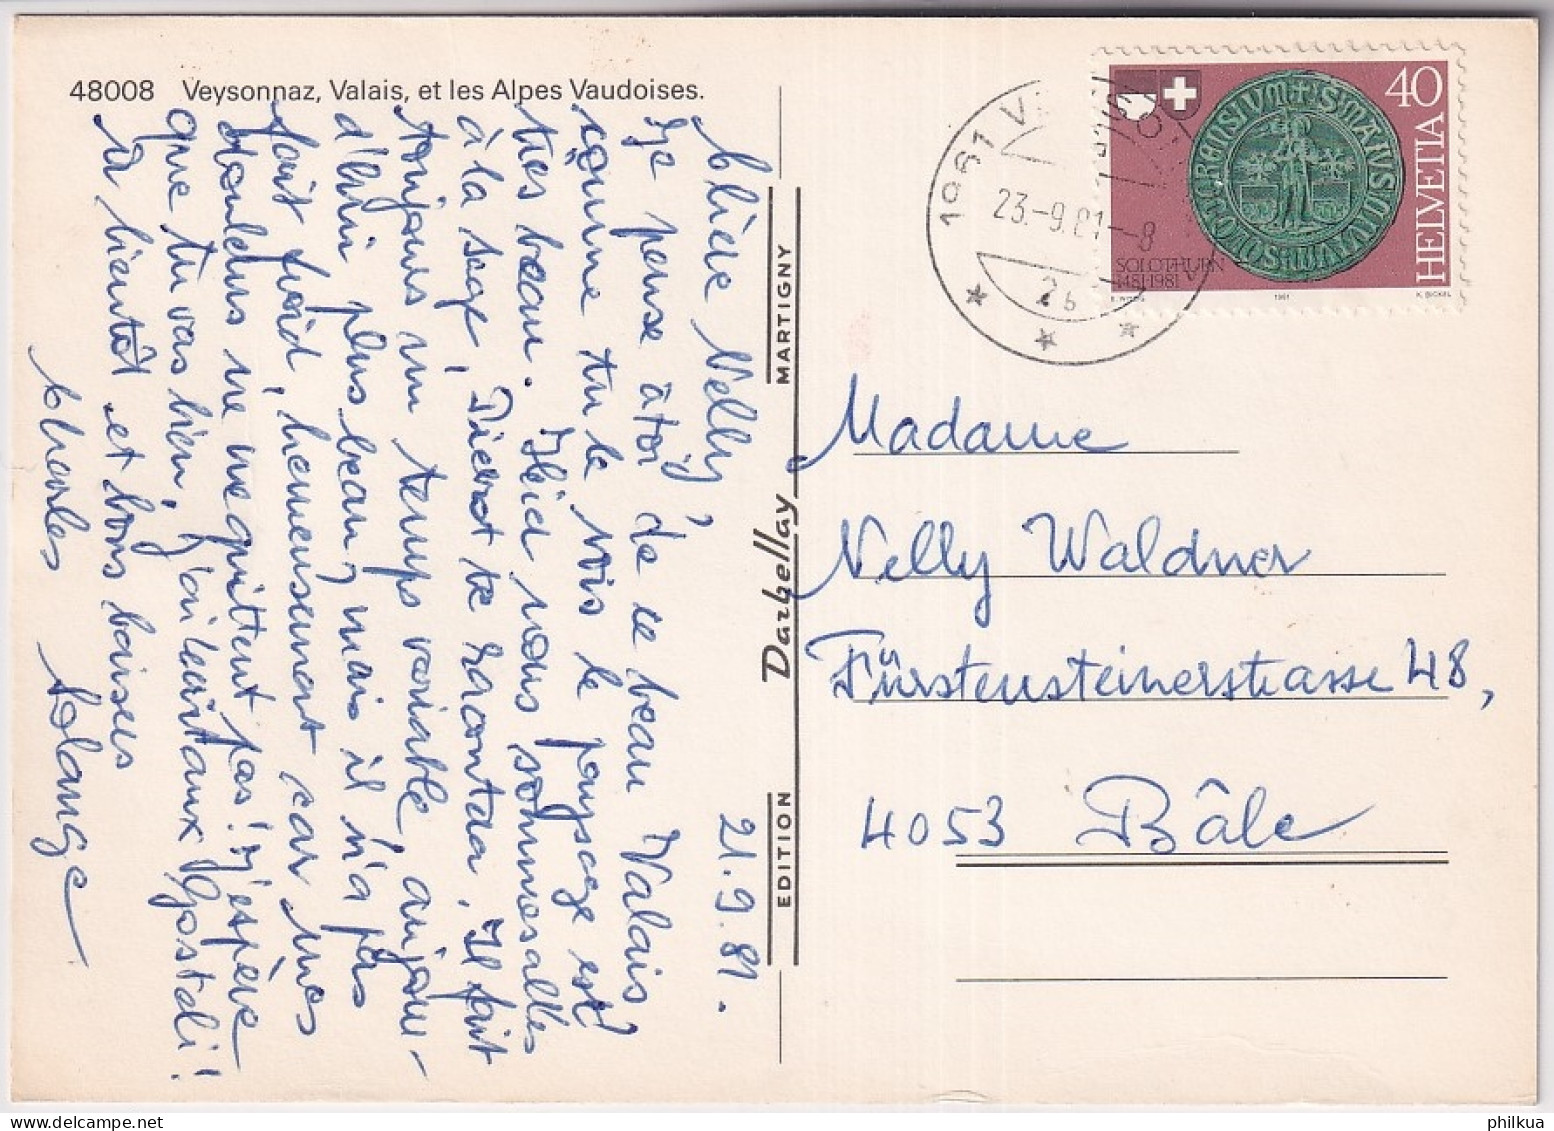 48008 Veysonnaz, Valais, et les Alpes Vaudoises.
21.9.81.
Chère Nelly,
Je pense à toi de ce beau Valais
comme tu le vois le paysage est
très beau. Hier nous sommes allés
à la sage, Pierrot te racontera. Il fait
toujours un temps variable, aujour-
d'hui plus beau, mais il n'a pas
fait froid, heureusement car nos
douleurs ne me quittent pas! J'espère
que tu vas bien, j'ai écrit aux Gostali!
A bientôt et bons baisers
Charles Solange
EDITION Darbellay MARTIGNY
1961 V
23.-9.81-8
2b
40
HELVETIA
SOLOTHURN
1481·1981
1981
K. BICKEL
Madame
Nelly Waldner
Fürstensteinerstrasse 48,
4053 Bâle
philkua